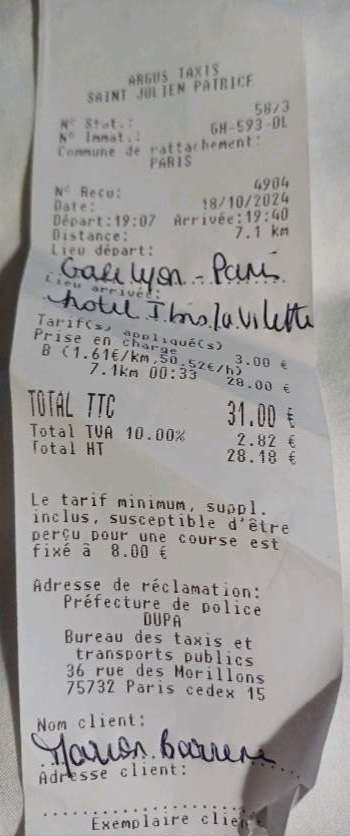 ARGUS TAXIS
SAINT JULIEN PATRICE
N° Stat.: 58/3
N° Immat.: GH-593-DL
Commune de rattachement:
PARIS
N° Recu: 4904
Date: 18/10/2024
Départ:19:07 Arrivée:19:40
Distance: 7.1 km
Lieu départ:
Gare Lyon - Paris
Lieu arrivée:
hotel Ibis la Vilette
Tarif(s) appliqué(s)
Prise en charge 3.00 €
B (1.61€/km,50.52€/h)
7.1km 00:33 28.00 €
TOTAL TTC 31.00 €
Total TVA 10.00% 2.82 €
Total HT 28.18 €
Le tarif minimum, suppl.
inclus, susceptible d'être
perçu pour une course est
fixé à 8.00 €
Adresse de réclamation:
Préfecture de police
DUPA
Bureau des taxis et
transports publics
36 rue des Morillons
75732 Paris cedex 15
Nom client:
Marion
Adresse client:
Exemplaire client